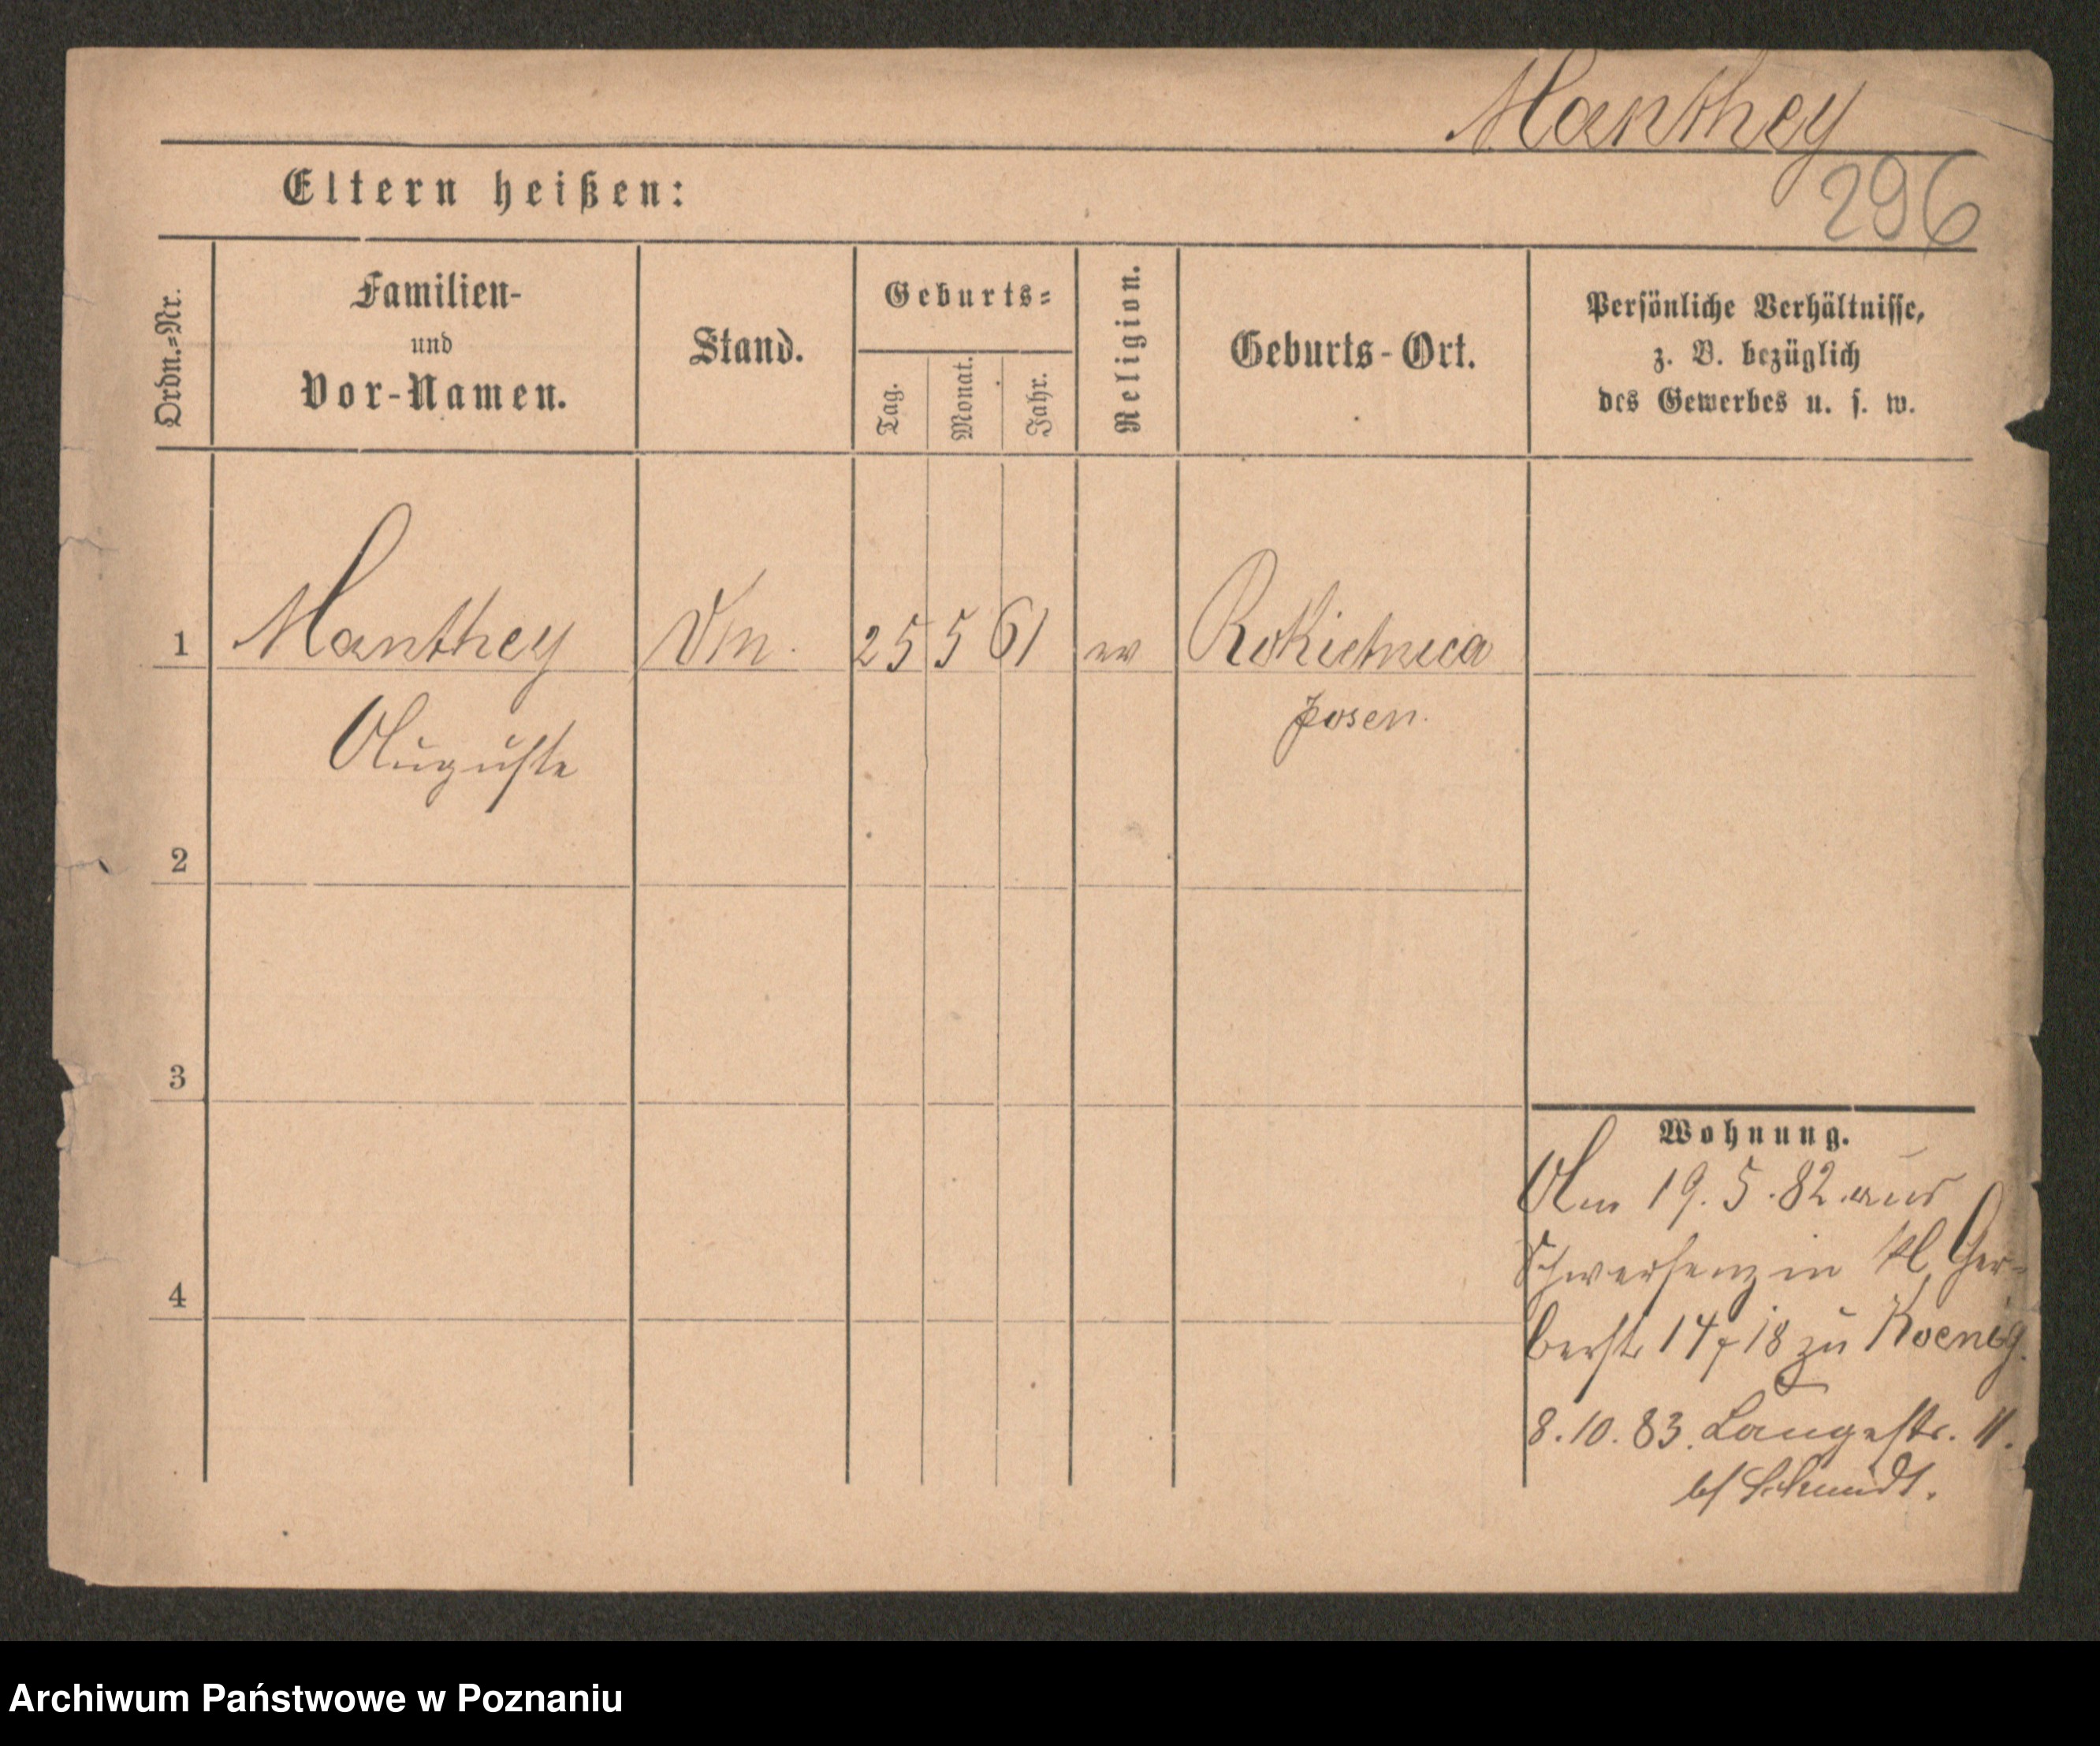 Manthey
296
Eltern heißen:
Ordn.-Nr.
Familien-
und
Vor-Namen.
Stand.
Geburts-
Tag.
Monat.
Jahr.
Religion.
Geburts-Ort.
Persönliche Verhältnisse,
z. B. bezüglich
des Gewerbes u. s. w.
1 Manthey 25 5 61 ev Rokietnica
Auguste Posen.
2
3
4
Wohnung.
Am 19.5.82 aus
Schwersenz in kl. Ger-
berstr 14/18 zu Koenig.
8.10.83. Langestr. 11.
b/ Schmidt.
Archiwum Państwowe w Poznaniu